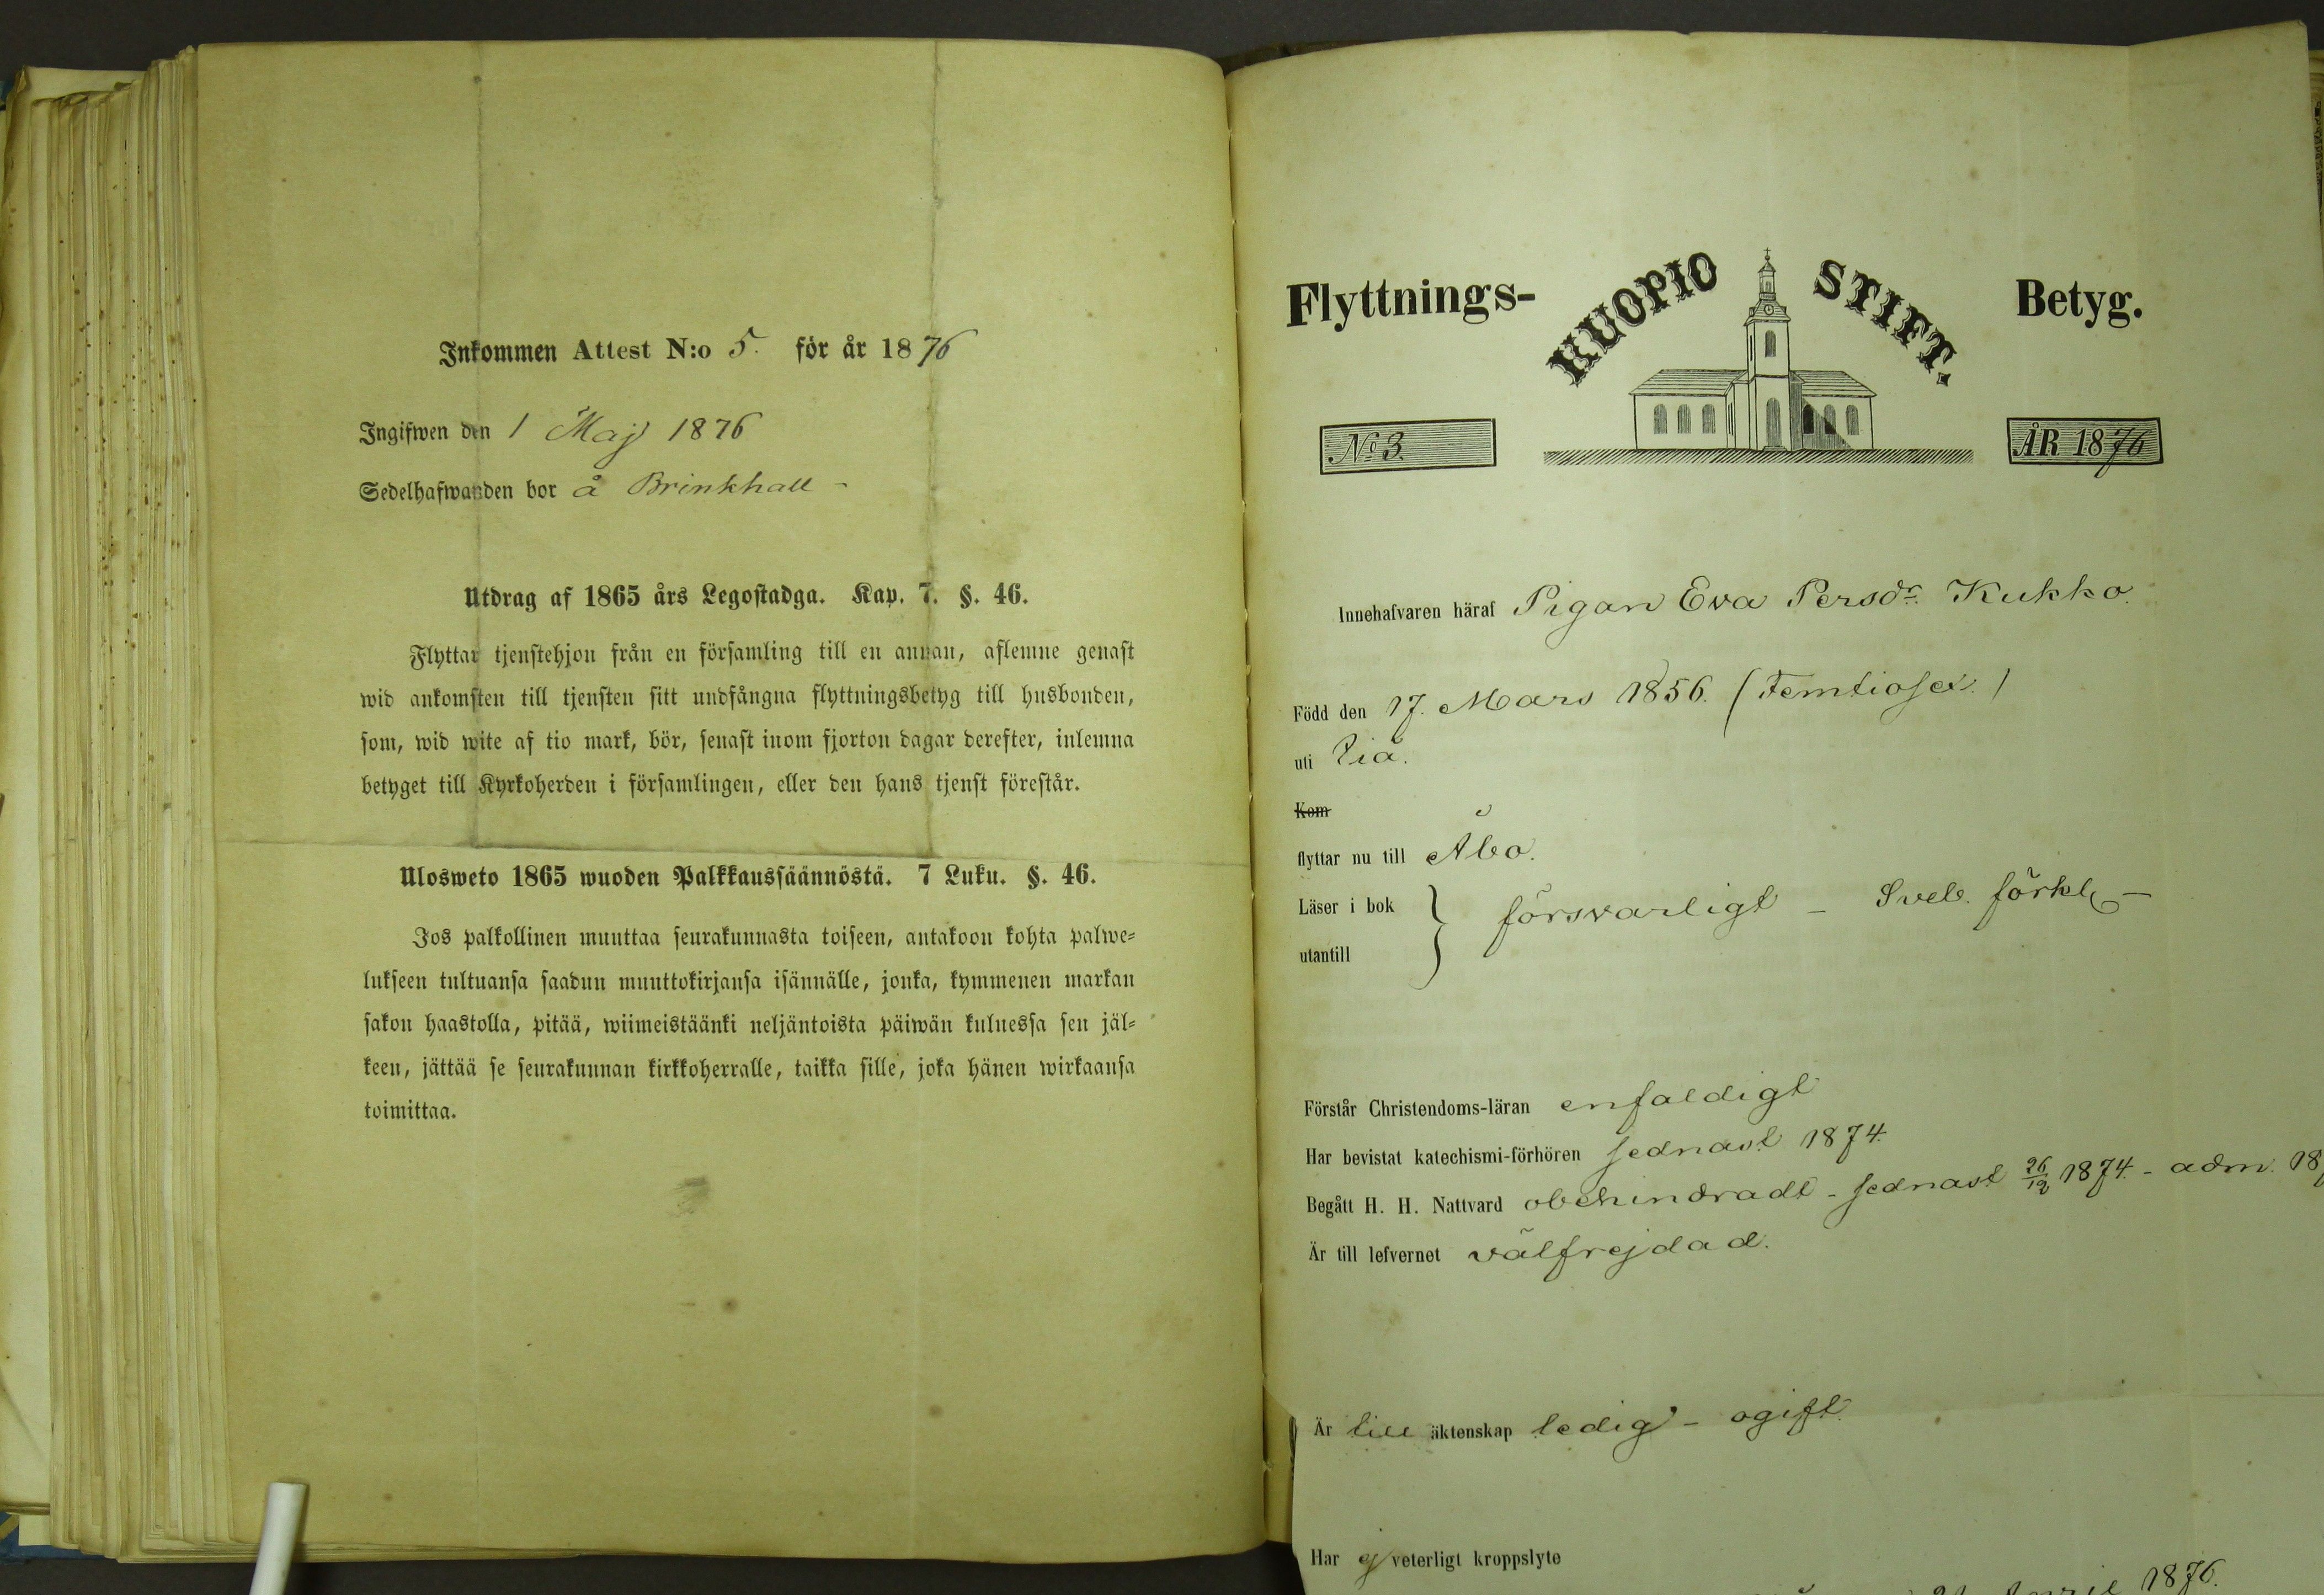 Inkommen Attest N:o 5. för år 1876
Ingifwen den 1 Maj 1876
Sedelhafwanden bor å Brinkhall -
Utdrag af 1865 års Legostadga. Kap. 7. §. 46.
Flyttar tjenstehjon från en församling till en annan, aflemne genast
wid ankomsten till tjensten sitt undfångna flyttningsbetyg till husbonden,
som, wid wite af tio mark, bör, senast inom fjorton dagar derefter, inlemna
betyget till Kyrkoherden i församlingen, eller den hans tjenst förestår.
Ulosweto 1865 wuoden Palkkaussäännöstä. 7 Luku. §. 46.
Jos palkollinen muuttaa seurakunnasta toiseen, antakoon kohta palwe=
lukseen tultuansa saadun muuttokirjansa isännälle, jonka, kymmenen markan
sakon haastolla, pitää, wiimeistäänki neljäntoista päiwän kuluessa sen jäl=
keen, jättää se seurakunnan kirkkoherralle, taikka sille, joka hänen wirkaansa
toimittaa.
Flyttnings- KUOPIO STIFT. Betyg.
No 3. ÅR 1876
Innehafvaren häraf Pigan Eva Persdr. Kukko.
Född den 17. Mars 1856. (Femtiosex.)
uti
Kom
flyttar nu till Åbo.
Läser i bok } försvarligt - Sveb. förkl. -
utantill
Förstår Christendoms-läran enfaldigt
Har bevistat katechismi-förhören sednast 1874.
Begått H. H. Nattvard obehindradt - sednast 26/12 1874. - adm. 18
Är till lefvernet välfrejdad.
Är till äktenskap ledig - ogift.
Har ej veterligt kroppslyte
April 1876.